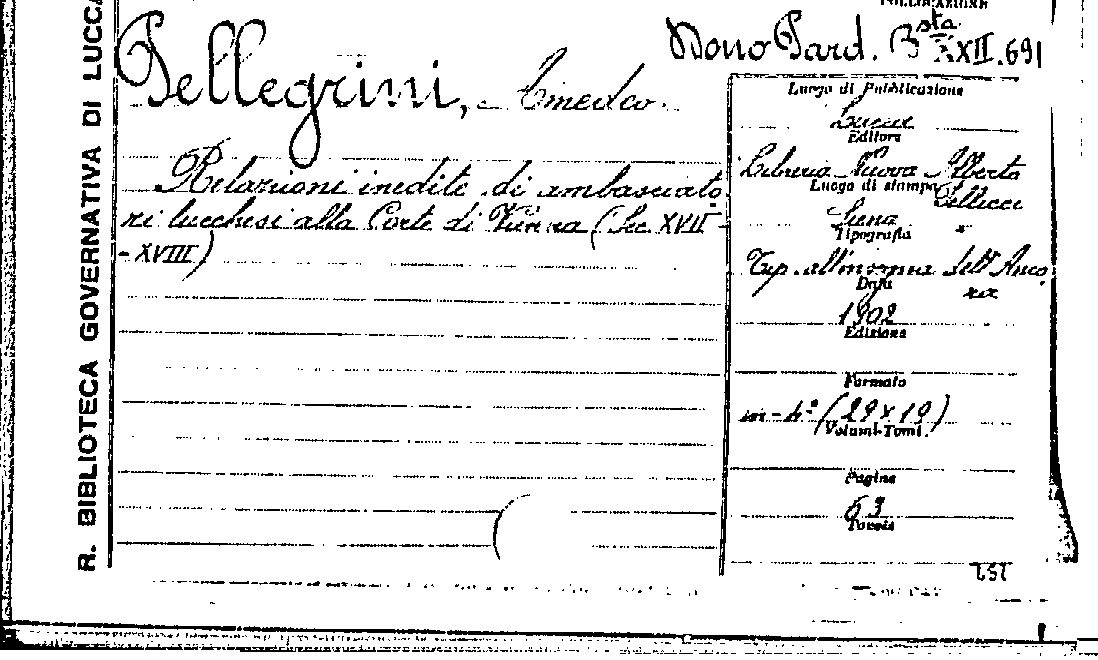 R. BIBLIOTECA GOVERNATIVA DI LUCCA
COLLOCAZIONE
Bsta XXII.691
Pellegrini, Amedeo.
Relazioni inedite di ambasciato
ri lucchesi alla Corte di Vienna (Sec. XVII -
- XVIII)
Luogo di Pubblicazione
Lucca
Editore
Libreria Nuova Alberto
Pellicci
Luogo di stampa
Siena
Tipografia
Tip. all'insegna dell'Anco
ra
Data
1902
Edizione
Formato
in-4° (29x19)
Volumi-Tomi.
Pagine
63
Tavole